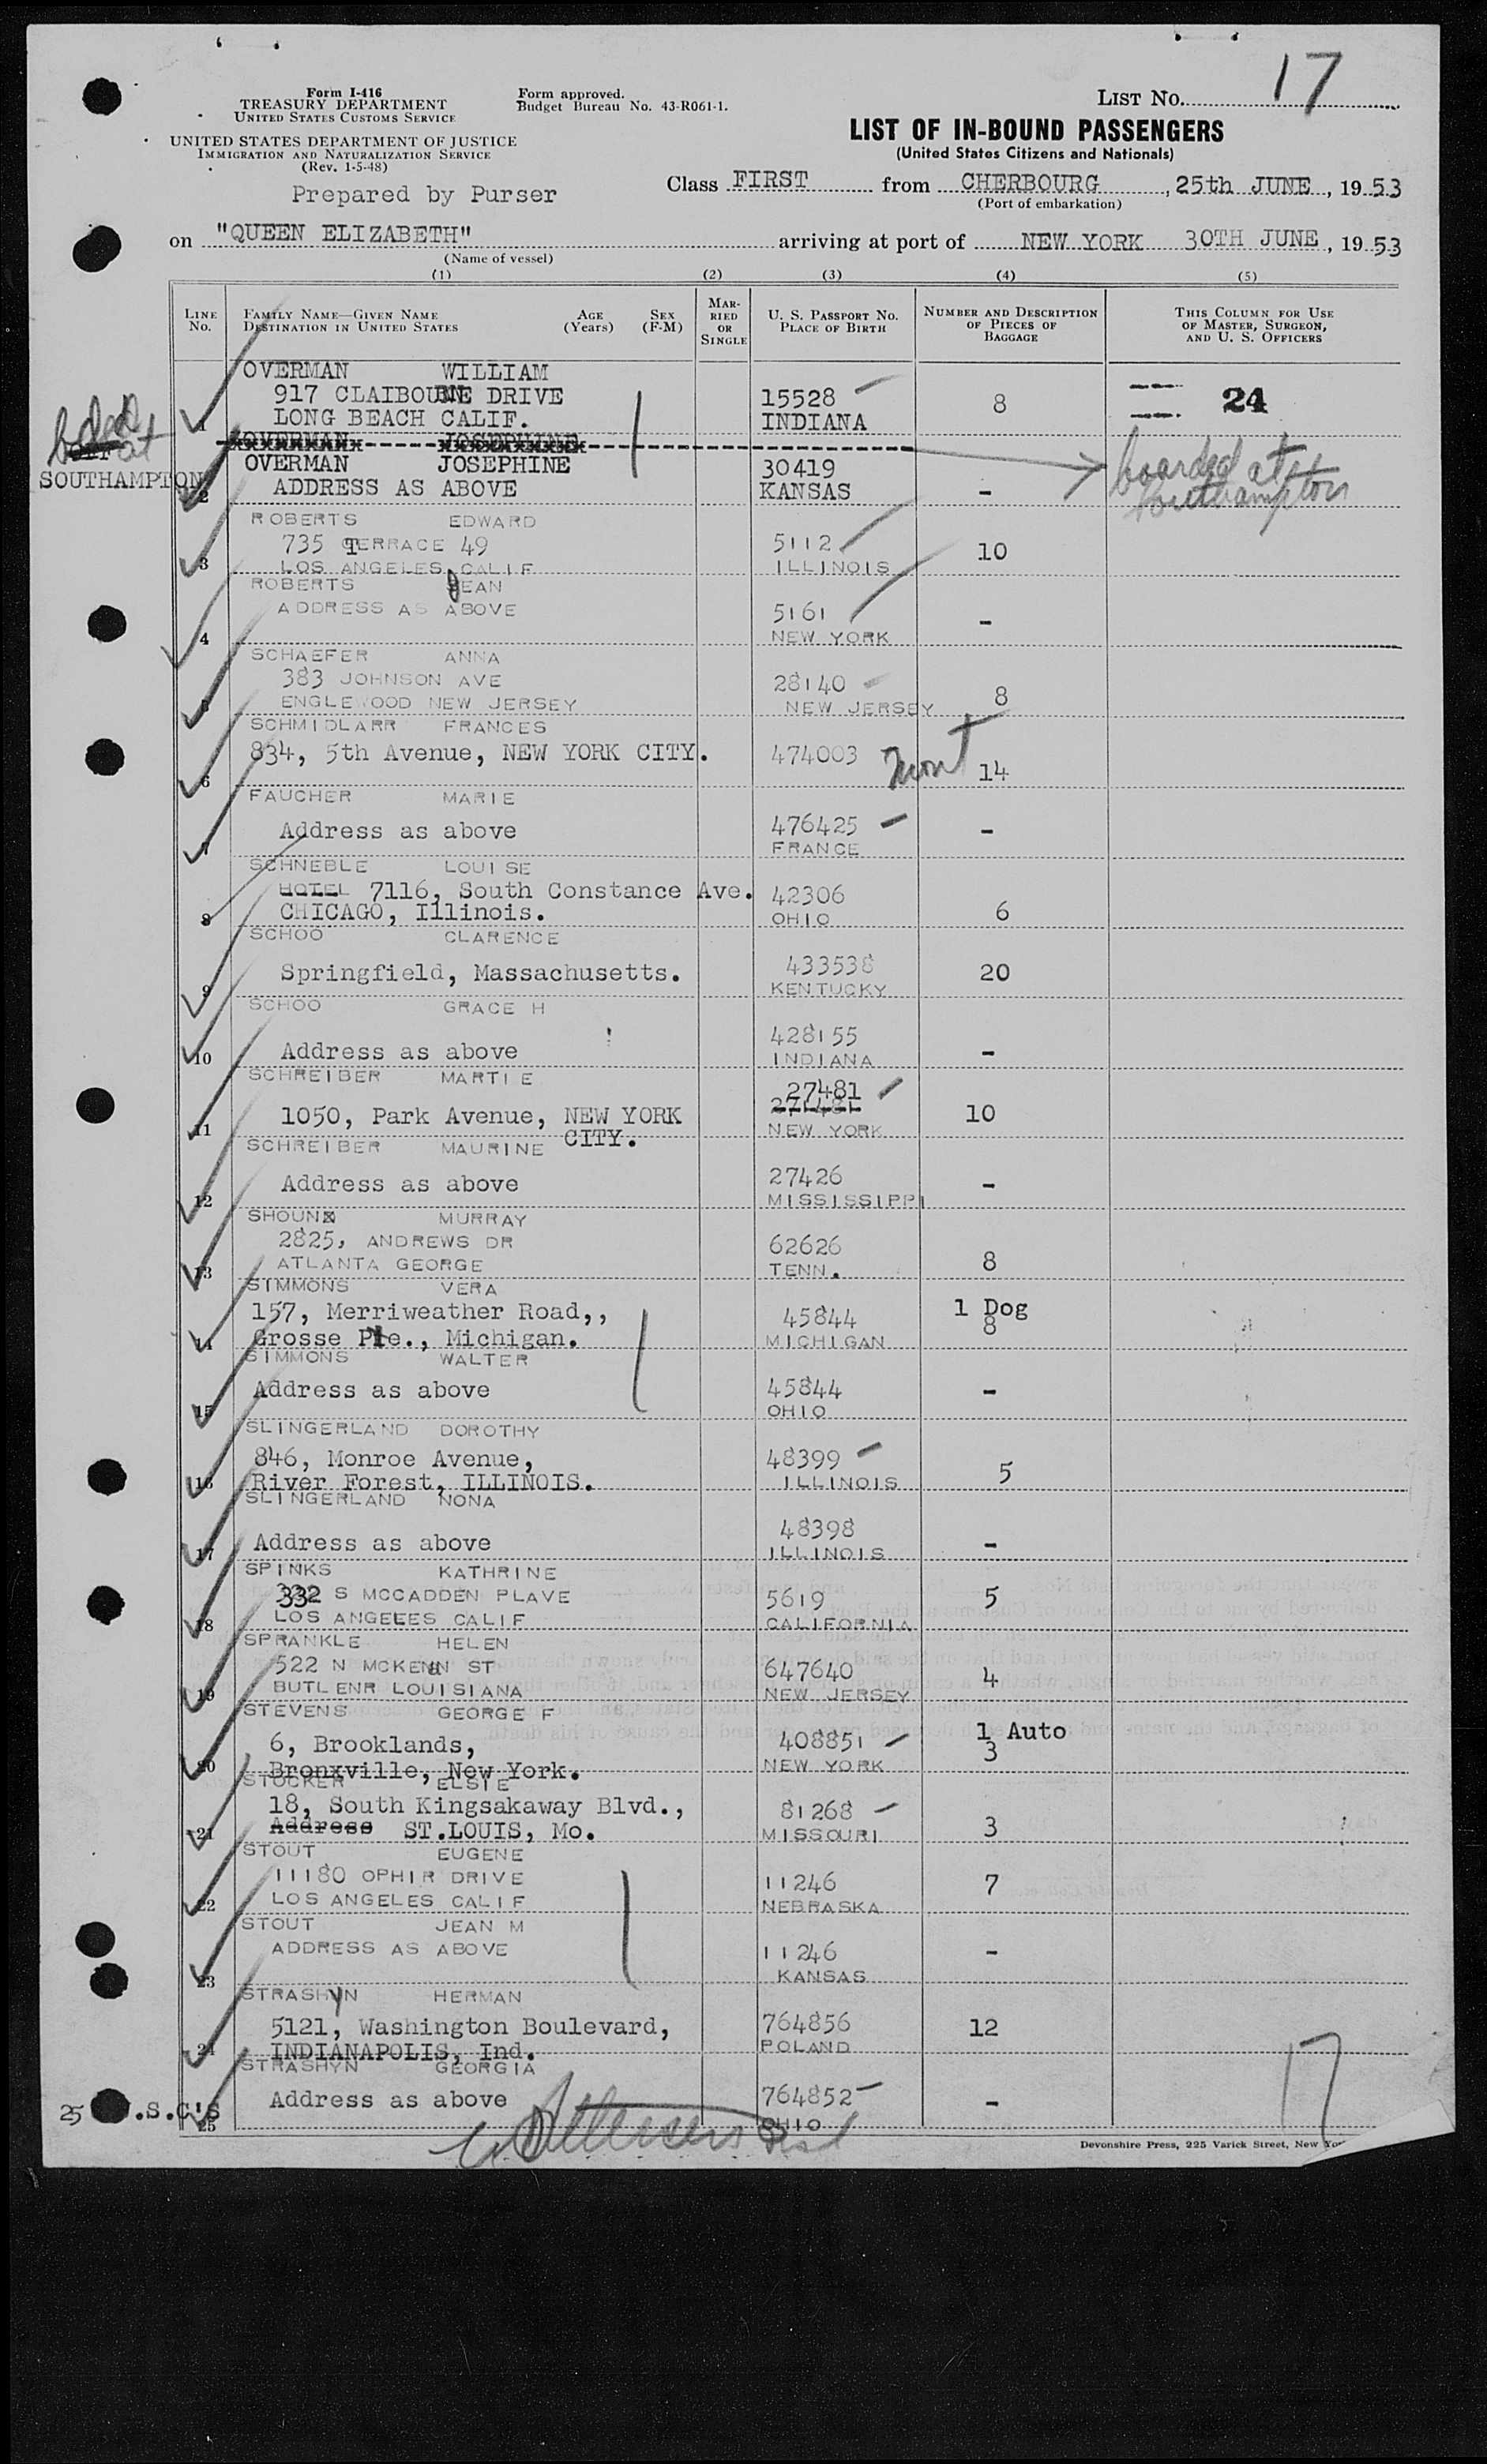 17
Form I-416
TREASURY DEPARTMENT
UNITED STATES CUSTOMS SERVICE
Form approved.
Budget Bureau No. 43-R061-1.
LIST NO.
UNITED STATES DEPARTMENT OF JUSTICE
IMMIGRATION AND NATURALIZATION SERVICE
(Rev. 1-5-48)
LIST OF IN-BOUND PASSENGERS
(United States Citizens and Nationals)
Prepared by Purser
Class FIRST from CHERBOURG, 25th JUNE, 1953
(Port of embarkation)
on "QUEEN ELIZABETH" arriving at port of NEW YORK 30TH JUNE, 1953
(Name of vessel)
(1) (2) (3) (4) (5)
LINE No. FAMILY NAME—GIVEN NAME DESTINATION IN UNITED STATES AGE (Years) SEX (F-M) MARRIED OR SINGLE U. S. PASSPORT NO. PLACE OF BIRTH NUMBER AND DESCRIPTION OF PIECES OF BAGGAGE THIS COLUMN FOR USE OF MASTER, SURGEON, AND U. S. OFFICERS
OVERMAN WILLIAM
917 CLAIBOURNE DRIVE 15528 8 24
1 LONG BEACH CALIF. INDIANA
OVERMAN JOSEPHINE
at
SOUTHAMPTON
OVERMAN JOSEPHINE 30419 boarded at Southampton
2 ADDRESS AS ABOVE KANSAS -
ROBERTS EDWARD
735 TERRACE 49 5112 10
3 LOS ANGELES CALIF ILLINOIS
ROBERTS JEAN
ADDRESS AS ABOVE 5161 -
4 NEW YORK
SCHAEFER ANNA
383 JOHNSON AVE 28140 8
5 ENGLEWOOD NEW JERSEY NEW JERSEY
SCHMIDLARR FRANCES
834, 5th Avenue, NEW YORK CITY. 474003 Mont 14
6
FAUCHER MARIE
Address as above 476425 -
7 FRANCE
SCHNEBLE LOUISE
HOTEL 7116, South Constance Ave. 42306
8 CHICAGO, Illinois. OHIO 6
SCHOO CLARENCE
Springfield, Massachusetts. 433538 20
9 KENTUCKY
SCHOO GRACE H
428155
10 Address as above INDIANA -
SCHREIBER MARTIE
27481
271481
1050, Park Avenue, NEW YORK 10
11 CITY. NEW YORK
SCHREIBER MAURINE
Address as above 27426 -
12 MISSISSIPPI
SHOUN MURRAY
2825, ANDREWS DR 62626
13 ATLANTA GEORGE TENN. 8
SIMMONS VERA
157, Merriweather Road,, 45844 1 Dog
14 Grosse Pte., Michigan. MICHIGAN 8
SIMMONS WALTER
Address as above 45844 -
15 OHIO
SLINGERLAND DOROTHY
846, Monroe Avenue, 48399
16 River Forest, ILLINOIS. ILLINOIS 5
SLINGERLAND NONA
48398
17 Address as above ILLINOIS -
SPINKS KATHRINE
332 S MCCADDEN PLAVE 5619 5
18 LOS ANGELES CALIF CALIFORNIA
SPRANKLE HELEN
522 N MCKEAN ST 647640 4
19 BUTLENR LOUISIANA NEW JERSEY
STEVENS GEORGE F
6, Brooklands, 408851 1 Auto
3
20 Bronxville, New York. NEW YORK
STOCKER ELSIE
18, South Kingsakaway Blvd., 81268
21 Address ST.LOUIS, Mo. MISSOURI 3
STOUT EUGENE
11180 OPHIR DRIVE 11246 7
22 LOS ANGELES CALIF NEBRASKA
STOUT JEAN M
ADDRESS AS ABOVE 11246 -
23 KANSAS
STRASHYN HERMAN
5121, Washington Boulevard, 764856 12
24 INDIANAPOLIS, Ind. POLAND
STRASHYN GEORGIA
Address as above 764852 -
25 .S.C'S
25 OHIO
17
Devonshire Press, 225 Varick Street, New